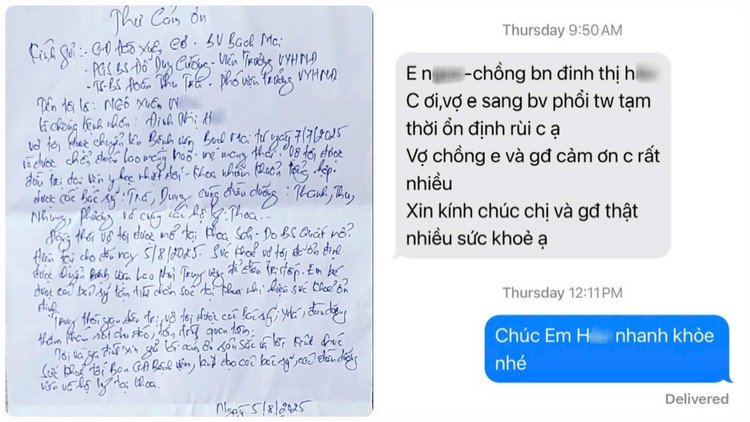 Thư Cảm ơn
Kính gửi: GĐ Đào Xuân Cơ - BV Bạch Mai
- PGS BS Đỗ Duy Cường - Viện Trưởng VYHNĐ
- TS-BS Đoàn Thu Trà - Phó viện trưởng VYHNĐ
Tên tôi là: Ngô Xuân
Là chồng bệnh nhân: Đinh Thị H
Vợ tôi được chuyển lên Bệnh viện Bạch Mai từ ngày 7/7/2025
và được chẩn đoán lao màng não - mẹ mang thai. Vợ tôi được
điều trị tại viện y học nhiệt đới - khoa nhiễm khuẩn tổng hợp.
được các bác sỹ: Trà, Dung, cùng điều dưỡng: Thanh, Thu,
Nhung, Phương và cùng các hộ lý: Thoa...
Đồng thời vợ tôi được mổ tại khoa Sản - Do BS Quát mổ
Hiện tại cho đến nay 5/8/2025. Sức khoẻ vợ tôi đã ổn định
được chuyển Bệnh viện Lao Phổi Trung ương để điều trị tiếp. Em bé
được các bác sỹ tận tình chăm sóc tại khoa nhi hiện sức khoẻ ổn
định.
Trong thời gian điều trị, vợ tôi được các bác sỹ, y tá, điều dưỡng
thăm khám rất chu đáo, tận tình quan tâm.
Tôi và gia đình xin gửi lời cảm ơn sâu sắc và lời kính chúc
sức khoẻ tới Ban GĐ Bệnh viện, các bác sỹ, các điều dưỡng
viên và hộ lý tại khoa.
Ngày 5/8/2025
Thursday 9:50 AM
E -chồng bn đinh thị h
C ơi,vợ e sang bv phổi tw tạm
thời ổn định rùi c ạ
Vợ chồng e và gđ cảm ơn c rất
nhiều
Xin kính chúc chị và gđ thật
nhiều sức khoẻ ạ
Thursday 12:11 PM
Chúc Em H nhanh khỏe
nhé
Delivered